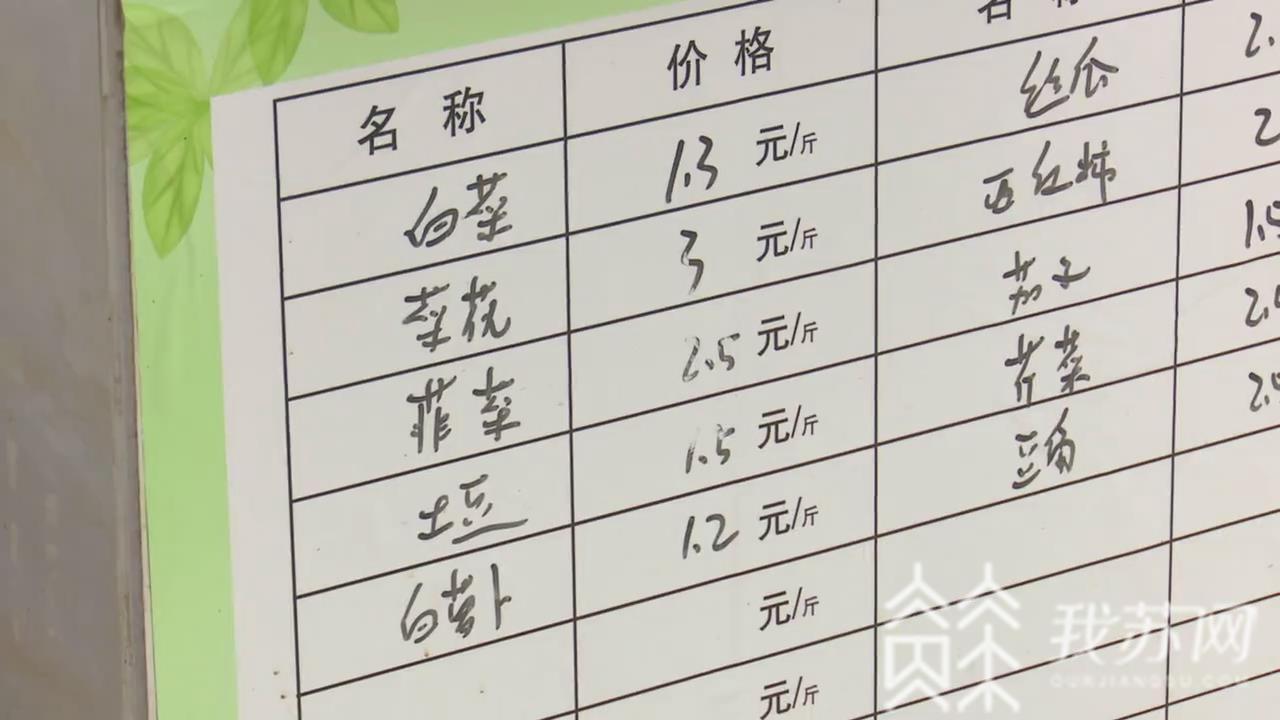 名称 价格 名称
白菜 1.3 元/斤 丝瓜 2.
菜花 3 元/斤 西红柿 2
韭菜 2.5 元/斤 茄子 1.5
土豆 1.5 元/斤 芹菜 2.
白萝卜 1.2 元/斤 豆角 2.
元/斤
元/斤
我苏网
OURJIANGSU.COM